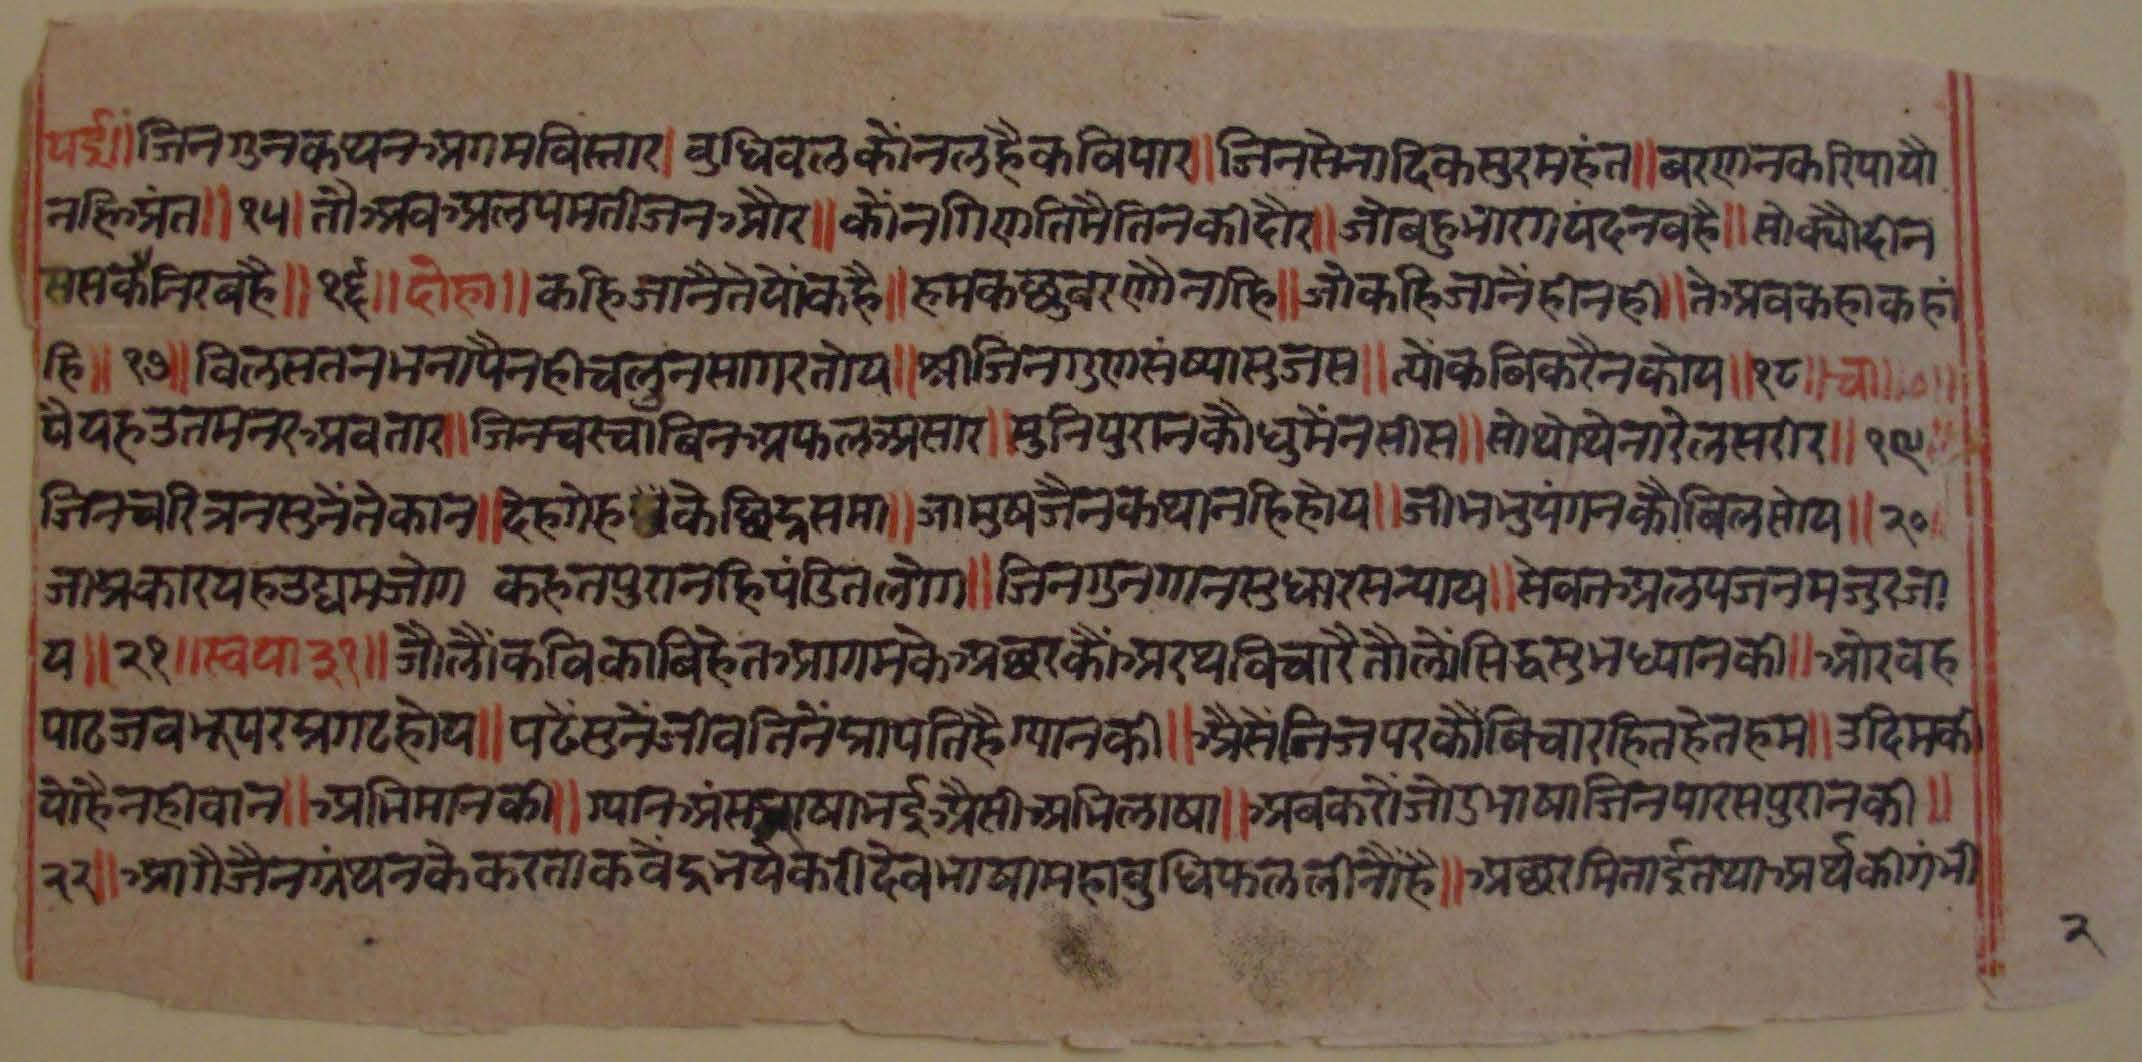 पई॥ जिनगुनकथनअगमविस्तार। वुधिवलकौंनलहैकविपार॥ जिनसेनादिकसुरमहंत॥ बरणनकरिपायौ
नहिअंत॥ १५। तौअवअलपमतीजनऔर॥ कौंनगिणतिमैतिनकीदौर॥ जोबहुभारगयंदनवहै॥ सोक्यौदीन
ससकैनिरवहै॥ १६॥ दोहा॥ कहिजानैतेयोंकहै॥ हमकछुबरणौनाहि॥ जोकहिजानैंहीनही॥ तेअवकहाकहां
हि॥ १७॥ विलसतनभनापैनहीचलुंनसागरतोय॥ श्रीजिनगुणसंष्यासुजस॥ त्योंकबिकरैनकोय॥ १८॥ चौ॥
पैयहउतमनरअवतार॥ जिनचरचाबिनअफलअसार॥ सुनिपुरानकौघुमैंनसीस॥ सोथोथेनारेलसरीर॥ १९
जिनचरित्रनसुनैंतेकान॥ देहगेहकेछिद्रसमा॥ जामुषजैनकथानहिहोय॥ जीभभुयंगनकौबिलसोय॥ २०
जाप्रकारयहउद्यमजोग कहतपुरानहिपंडितलोग॥ जिनगुनगानसुधारसन्याय॥ सेवतअलपजनमजुरजा
य॥ २१॥ स्वया ३१॥ जौलौंकविकाबिहेतआगमकेअछरकौंअरथविचारैतौलोंसिद्धसुभध्यानकी॥ ओरवह
पाठजवभूपरप्रगटहोय॥ पढैंसुनैंजीवतिनैंप्रापतिहैग्यानकी॥ अैसैंनिजपरकौबिचारहितहेतहम॥ उदिमकी
योहैनहीवान॥ अभिमानकी॥ ग्यानअंसचाषाभईअैसीअभिलाषा॥ अवकरौंजोडभाषाजिनपारसपुरानकी॥
२२॥ आगैजैनग्रंथनकेकरताकवेंद्रभयेकरीदेवभाषामहाबुधिफललीनौंहै॥ अछरमिताईतथाअर्थकीगंभी
२